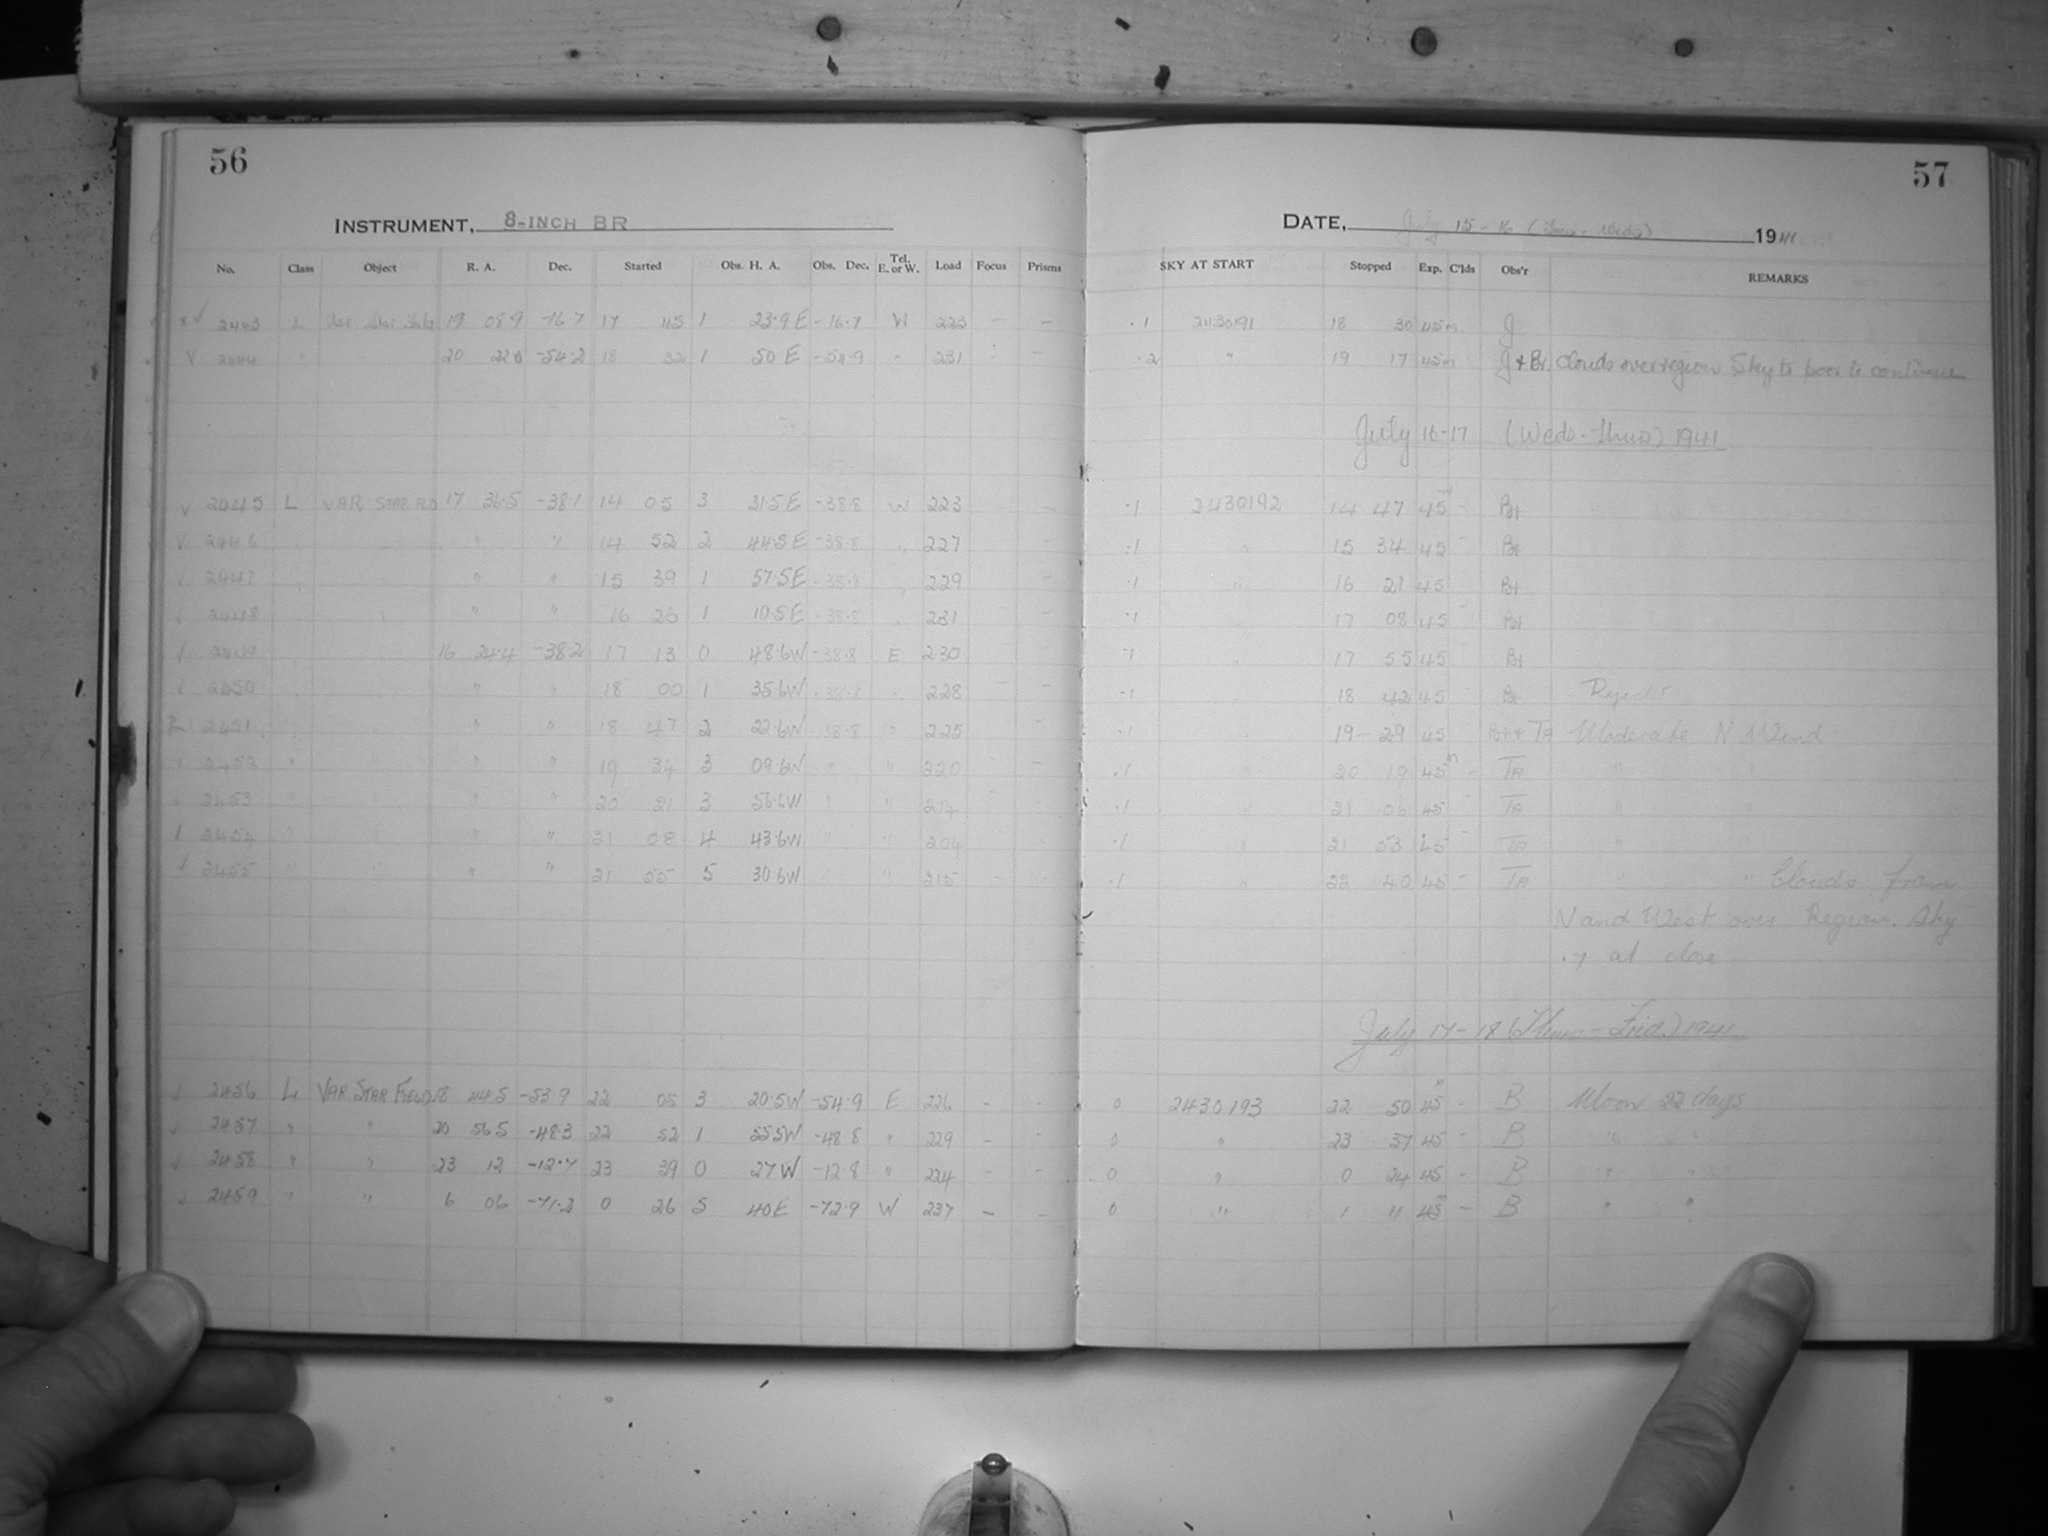 56
INSTRUMENT, 8-INCH BR
No. Class Object R. A. Dec. Started Obs. H. A. Obs. Dec. Tel. E. or W. Load Focus Prisms
2443 L Var Star 19 08.9 -16.7 17 45 1 23.9 E -16.7 W 223 - -
2444 " 20 22.6 -54.2 18 32 1 50 E -54.9 " 231 - -
2445 L VAR STAR FLD 17 36.5 -38.1 14 05 3 31.5 E -38.8 W 223 -
2446 " " 14 52 2 44.5 E -38.8 " 227 -
2447 " " 15 39 1 57.5 E -38.8 " 229 -
2448 " " 16 26 1 10.5 E -38.8 231 -
2449 16 24.4 -38.2 17 13 0 48.6W -38.8 E 230 -
2450 " " 18 00 1 35.6W -38.8 228 - -
R 2451 " " 18 47 2 22.6W -38.8 " 225 -
2452 " " " 19 34 3 09.6W " " 220 - -
2453 " " " 20 21 3 56.6W " " 214 - -
2454 " " " " 21 08 4 43.6W " " 204 -
2455 " " " " 21 55 5 30.6W " 215 - -
2456 L VAR STAR FIELD 18 44.5 -53.9 22 05 3 20.5W -54.9 E 226 - -
2457 " " 20 56.5 -48.3 22 52 1 55.5W -48.8 " 229 - -
2458 " " 23 12 -12.7 23 39 0 27W -12.8 " 224 - -
2459 " " 6 06 -71.2 0 26 5 40E -72.9 W 237 - -
57
DATE, July 15-16 (Tues - Weds) 1941
SKY AT START Stopped Exp. C'lds Obs'r REMARKS
.1 2430191 18 30 45m. J
.2 " 19 17 45m J + Br. Clouds over region Sky to poor to continue
July 16-17 (Weds-Thurs) 1941
.1 2430192 14 47 45m - Bt
.1 " 15 34 45 - Bt
.1 " 16 21 45 Bt
.1 " 17 08 45 - Bt
.1 " 17 55 45 Bt
.1 18 42 45 - Bt Reject
.1 " 19-29 45 Bt + TA Moderate N Wind
.1 " 20 19 45m - TA " "
.1 " 21 06 45 - TA " "
.1 " 21 53 45 - TA "
.1 " 22 40 45 - TA " " Clouds from
N and West over Region. Sky
.7 at close
July 17-18 (Thurs-Frid.) 1941
0 2430193 22 50 45m - B Moon 22 days
0 " 23 37 45 - B " "
0 " 0 24 45 - B " "
0 " 1 11 45m - B " "